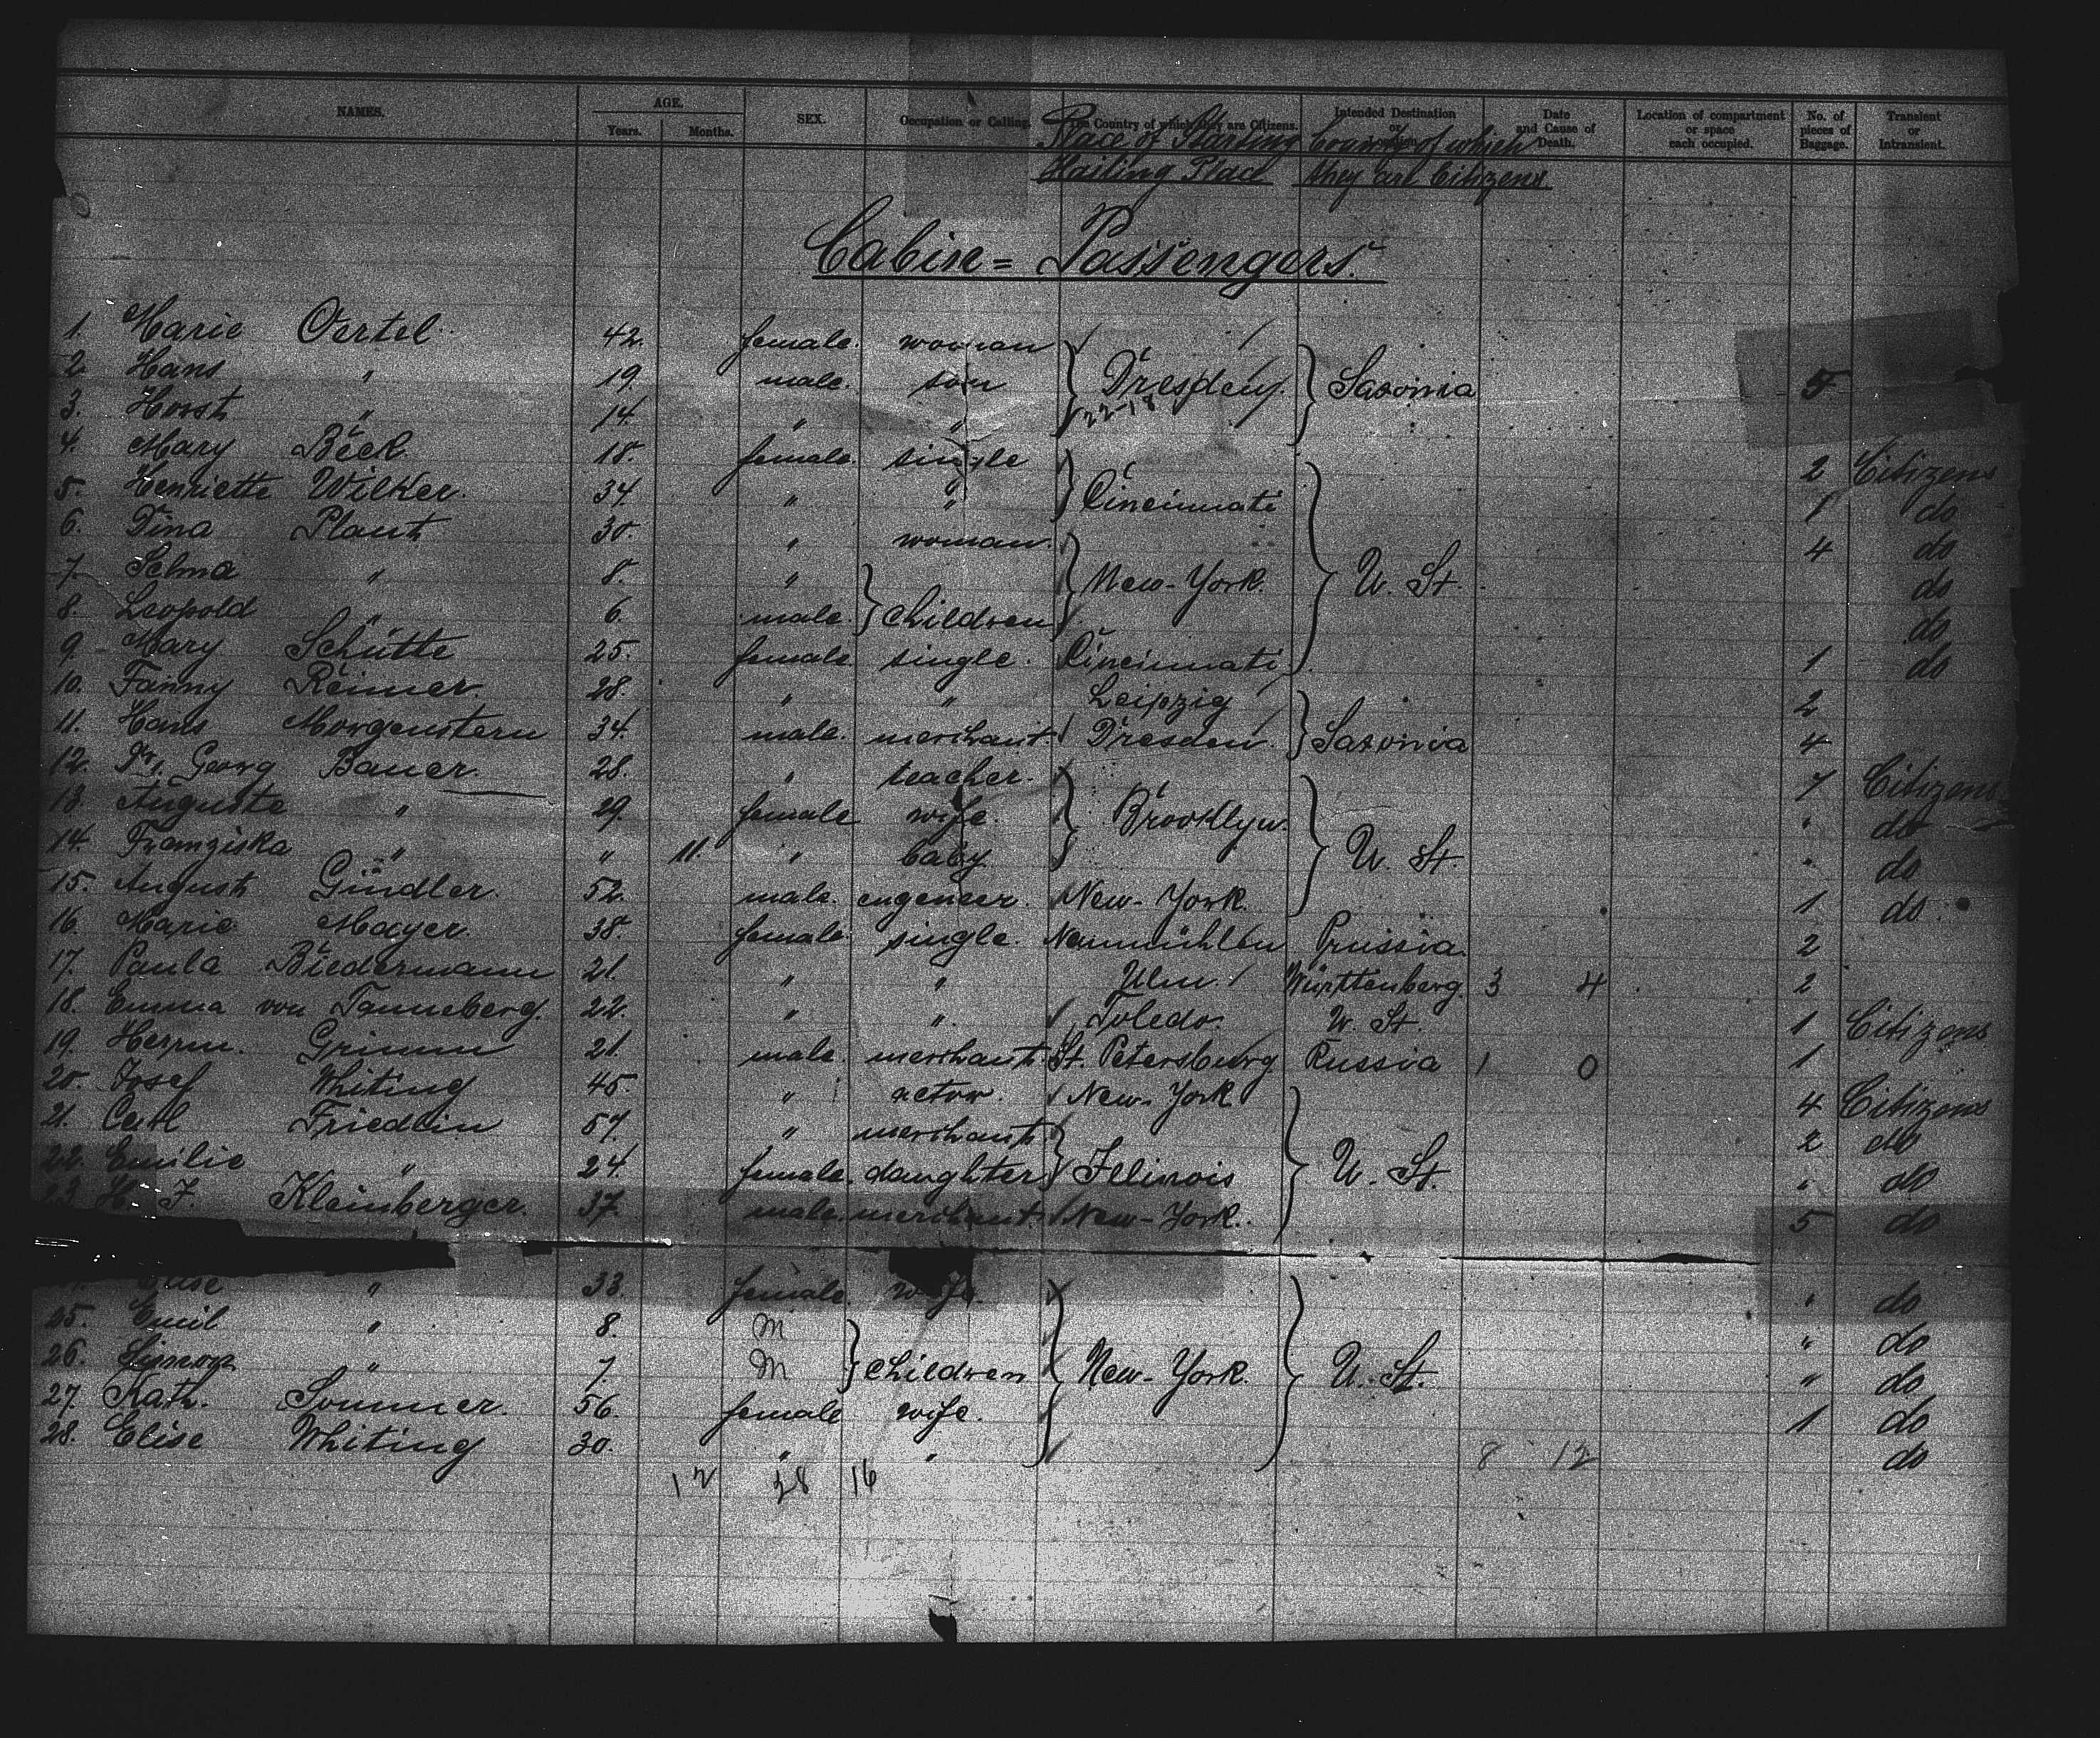 NAMES. AGE. SEX. Occupation or Calling. The Country of which they are Citizens. Intended Destination or Location. Date and Cause of Death. Location of compartment or space each occupied. No. of pieces of Baggage. Transient or Intransient.
Years. Months.
Place of Starting Country of which
Hailing Place they are Citizens
Cabin= Passengers.
1. Marie Oertel 42. female. woman
2. Hans " 19. male. son Dresden. Saxonia 5
3. Horst " 14. " " 22-18
4. Mary Beck 18. female. single 2 Citizens
5. Henriette Wilker. 34. " " Cincinnati 1 do
6. Tina Plaut 30. " woman. 4 do
7. Selma " 8. " New-York. U. St. do
8. Leopold " 6. male. children do
9. Mary Schütte 25. female single. Cincinnati 1 do
10. Fanny Reimer 28. " " Leipzig 2
11. Hans Morgenstern 34. male. merchant. Dresden. Saxonia 4
12. Dr. Georg Bauer. 28. " teacher. 7 Citizens
13. Auguste " 29. female wife. Brooklyn. " do
14. Franziska " " 11. " baby U. St. " do
15. August Gündler. 52. male. engeneer. New-York. 1 do
16. Marie Mayer. 38. female. single. Neumühlen Prussia. 2
17. Paula Biedermann 21. " " Ulm. Württenberg. 3 4 2
18. Emma von Tanneberg. 22. " " Toledo. U. St. 1 Citizens
19. Herrm. Grimm 21. male. merchant. St. Petersburg Russia 1 0 1
20. Josef Whiting 45. " actor. New-York 4 Citizens
21. Carl Friedlin 57. " merchant. 2 do
22. Emilie " 24. female. daughter Illinois U. St. " do
23. H. J. Kleinberger. 37. male. merchant. New-York. 5 do
Elise " 33. female. wife. " do
25. Emil " 8. M " do
26. Simon " 7. M children New-York. U. St. " do
27. Kath. Sommer. 56. female wife. 1 do
28. Elise Whiting 30. " " 8 12 do
12 28 16